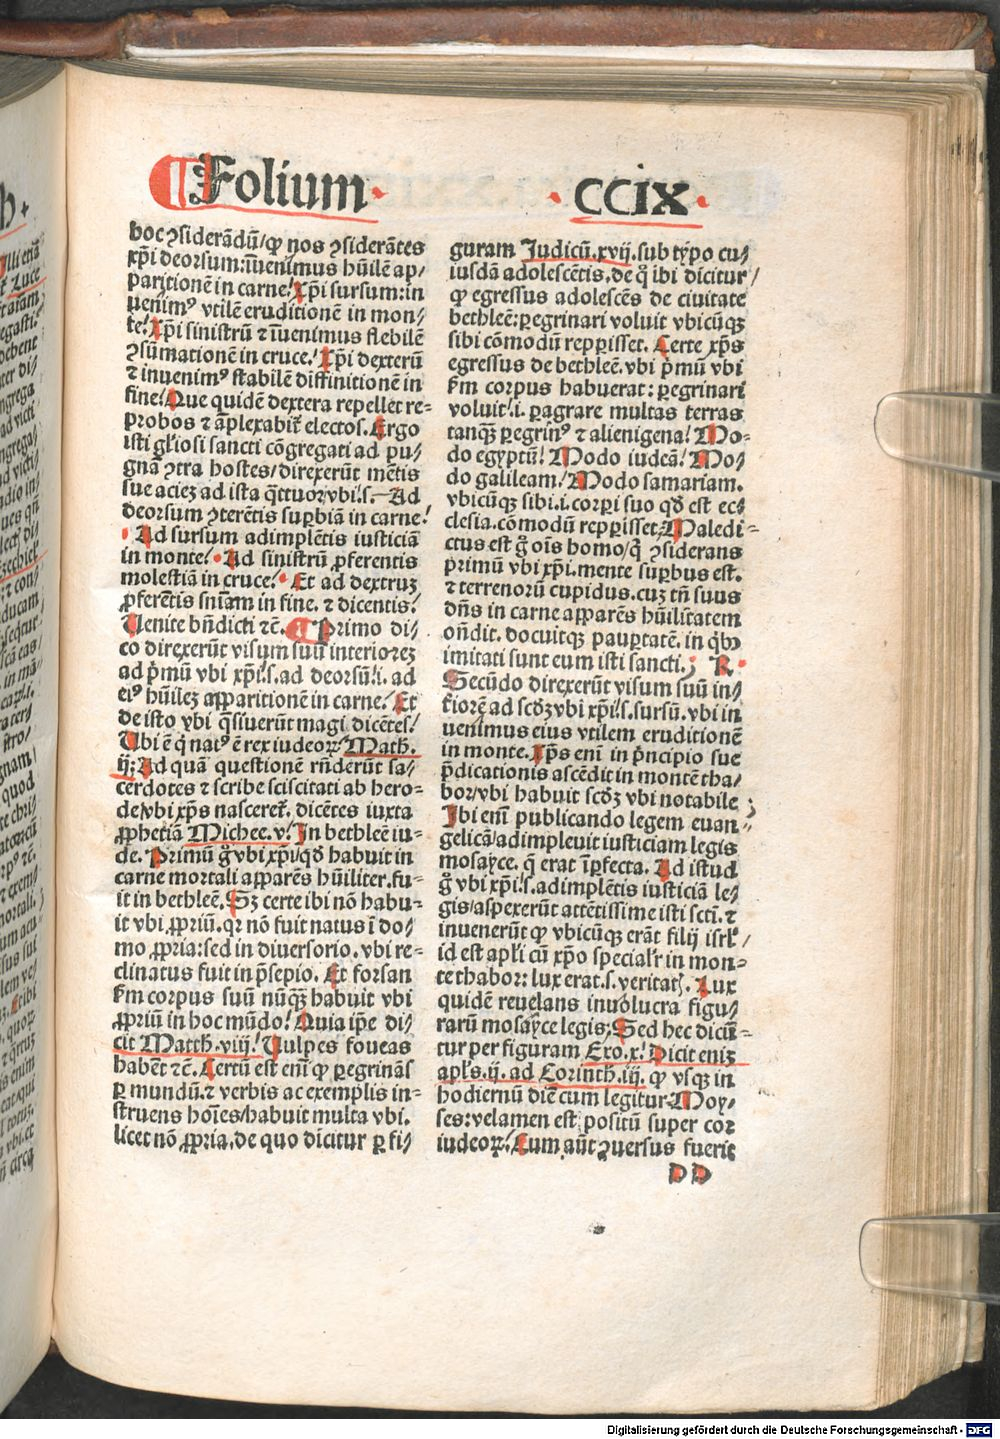 Folium. .CCIX.
hoc ꝯsiderādū/ꝙ nos ꝯsiderātes
xp̄i deorsum:īuenimus hūilē ap/
paritionē in carne! Xp̄i sursum:in
uenimꝰ vtilē eruditionē in mon/
te! Xp̄i sinistrū ⁊ īuenimus flebilē
ꝯsūmationē in cruce! Xp̄i dexterū
⁊ inuenimꝰ stabilē diffinitionē in
fine! Que quidē dextera repellet re⸗
probos ⁊ āplexabit̄ electos. Ergo
isti gl̄iosi sancti cōgregati ad pu/
gnā ꝯtra hostes/direxerūt mētis
sue aciez ad ista q̄ttuor vbi.s. Ad
deorsum ꝯterētis suꝑbiā in carne!
Ad sursum adimplētis iusticiā
in monte! Ad sinistrū ꝓferentis
molestiā in cruce! Et ad dextruꝫ
ꝓferētis sn̄iam in fine. ⁊ dicentis!
Uenite bn̄dicti ⁊c̄. Primo di/
co direxerūt visum suū interiorez
ad p̄mū vbi xp̄i.s. ad deorsū.i. ad
eiꝰ hūilez apparitionē in carne! Et
de isto vbi q̄siuerūt magi dicētes!
Ubi ē q̄ natꝰ ē rex iudeoꝝ Math.
ij: Ad quā questionē rn̄derūt sa/
cerdotes ⁊ scribe sciscitati ab hero⸗
de/vbi xp̄s nasceret̄. dicētes iuxta
ꝓphetiā Michee.v! In bethleē iu⸗
de. Primū g̊ vbi xp̄i/qd̄ habuit in
carne mortali apparēs hūiliter. fu/
it in bethleē. Sꝫ certe ibi nō habu⸗
it vbi ꝓpriū. qꝛ nō fuit natus ī do/
mo ꝓpria: sed in diuersorio. vbi re⸗
clinatus fuit in p̄sepio. Et forsan
fm̄ corpus suū nūqꝫ habuit vbi
ꝓpriū in hoc mūdo! Quia ip̄e di/
cit Matth.viij! Uulpes foueas
habēt ⁊c̄. Certū est em̄ ꝙ peregrinās
ꝑ mundū.⁊ verbis ac exemplis in⸗
struens hoīes/habuit multa vbi.
licet nō ꝓpria. de quo dicitur ꝑ fi/
guram Judicū.xvij. sub typo cu/
iusdā adolescētis. de q̄ ibi dicitur/
ꝙ egressus adolescēs de ciuitate
bethleē: ꝑegrinari voluit vbicūqꝫ
sibi cōmodū repꝑisset. Certe xp̄s
egressus de bethleē. vbi p̄mū vbi
fm̄ corpus habuerat: ꝑegrinari
voluit!.i. ꝑagrare multas terras
tanqꝫ ꝑegrinꝰ ⁊ alienigena! Mo⸗
do egyptū! Modo iudeā! Mo/
do galileam! Modo samariam.
vbicūqꝫ sibi.i. corꝑi suo qd̄ est ec⸗
clesia. cōmodū repꝑisset; Maledi⸗
ctus est g̊ oīs homo/q̄ ꝯsiderans
primū vbi xp̄i. mente suꝑbus est.
⁊ terrenorū cupidus. cuꝫ tn̄ suus
dn̄s in carne apparēs hūilitatem
on̄dit. docuitqꝫ pauꝑtatē. in qb̄ꝫ
imitati sunt eum isti sancti. R.
Secūdo direxerūt visum suū in/
t̄iorē ad scd̄ꝫ vbi xp̄i.s. sursū. vbi in
uenimus eius vtilem eruditionē
in monte. Xp̄s em̄ in p̄ncipio sue
p̄dicationis ascēdit in montē tha/
bor/vbi habuit scd̄ꝫ vbi notabile
Ibi em̄ publicando legem euan⸗
gelicā/adimpleuit iusticiam legis
mosayce. q̄ erat īꝑfecta. Ad istud
g̊ vbi xp̄i.s. adimplētis iusticiā le/
gis/aspexerūt attētissime isti scti. ⁊
inuenerūt ꝙ vbicūqꝫ erāt filij isrl̄/
id est apl̄i cū xp̄o speciaĺr in mon⸗
te thabor: lux erat.s. veritatꝭ. Lux
quidē reuelans inuolucra figu/
rarū mosayce legis; Sed hec dicūt̄⸗
tur per figuram Exo.x! Dicit eniꝫ
apl̄s.ij. ad Corinth.iij. ꝙ vsqꝫ in
hodiernū diē cum legitur Moy/
ses: velamen est positū super cor
iudeoꝝ! Cum aūt ꝯuersus fuerit
DD
Digitalisierung gefördert durch die Deutsche Forschungsgemeinschaft - DFG